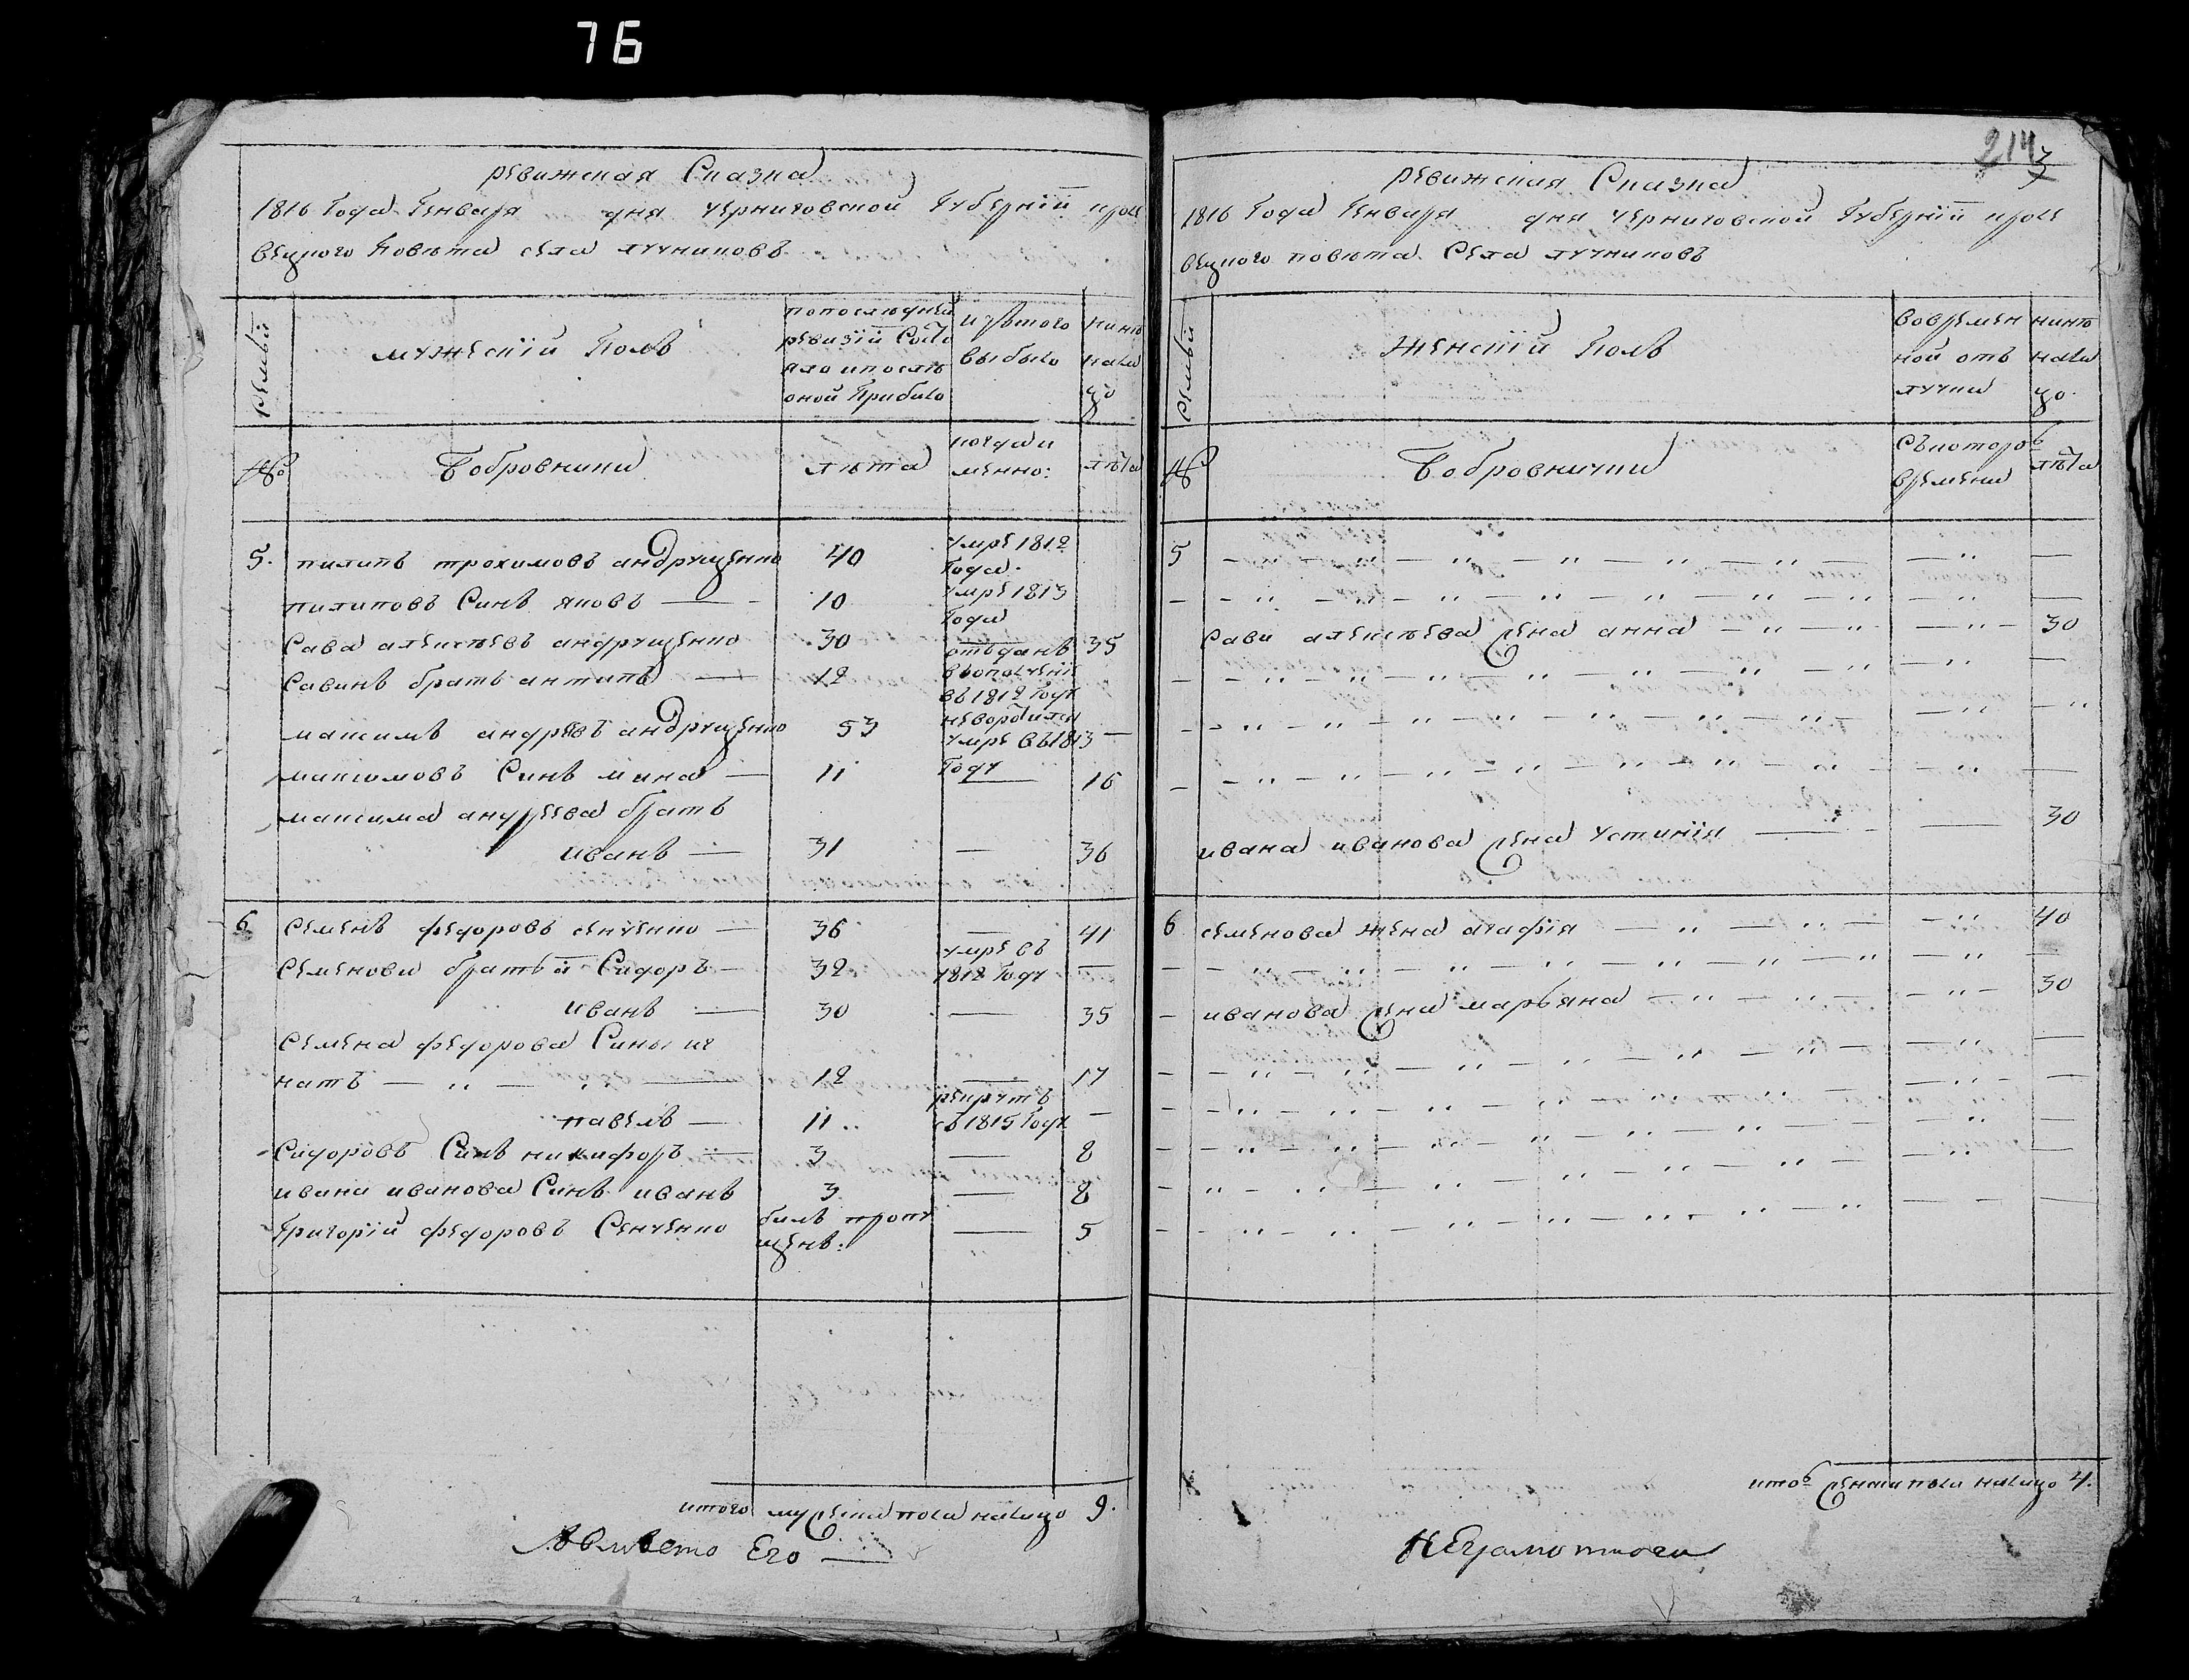 76
ревижская Сказка
1816 Года Генваря дня черниговской Губернїи кроле
вецкого Повѣта села лучниковъ
Семьи
мужескїй Полъ
попослѣдней
ревизїи Состо
яло ипослѣ
оной Прибыло
Изътого
выбыло
нынѣ
нали
цо
№
Бобровники
лѣта
когда и
менно:
лѣта
5. пилипъ трохимовъ андрущенко 40 умре 1812
Года.
пилиповъ Синъ яковъ — 10 умре 1813
Года
Сава алексѣевъ андрущенко 30 — 35
Савинъ братъ антипъ — 12 отъданъ
вополченїи
въ 1812 Году
неворотился
максимъ андреевъ андрущенко 53 умре въ 1813 —
Году
максимовъ Синъ мина — 11 — 16
максима андреева братъ
иванъ — 31 — 36
6 семенъ федоровъ сенченко — 36 — 41
Семенови братья Сидоръ — 32 умре въ
1812 Году —
иванъ — 30 — 35
семена федорова Сины иг
натъ — „ — „ — 12 — 17
павелъ — 11 .. рекрутъ
въ 1815 Году —
Сидоровъ Синъ никифоръ — 3 — 8
ивана иванова Синъ иванъ 3 — 8
Григорїй федоровъ Сенченко билъ пропу
щенъ: — 5
итого мужеска пола налицо 9.
Его —
214
3
ревижская Сказка
1816 Года Генваря дня черниговской Губернїи кроле
вецкого повѣта Села лучниковъ
Семьи
Женскїй Полъ
вовремен
ной отъ
лучки
нинѣ
нали
цо.
№
Бобровнички
Съкоторов
времени
лѣта
5 — „ — „ — „ — „ — „ — „ — „ —
— „ — „ — „ — „ — „ — „ — „ —
сави алексѣева жена анна — „ — „ — „ — 30
— „ — „ — „ — „ — „ — „ — „ —
— „ — „ — „ — „ — „ — „ — „ — „
— „ — „ — „ — „ — „ — „ — „ —
ивана иванова жена устинїя — — 30
6 семенова жена агафїя — „ — „ — — „ 40
— „ — „ — „ — „ — „ — „ — „ —
— иванова жена марьяна — „ — „ — — „ — 30
— „ — „ — „ — „ — „ — „ — „ —
— „ — „ — „ — „ — „ — „ — „ —
— „ — „ — „ — „ — „ — „ — „ —
— „ — „ — „ — „ — „ — „ — „ —
— „ — „ — „ — „ — „ — „ — — —
итого женска пола налицо 4.